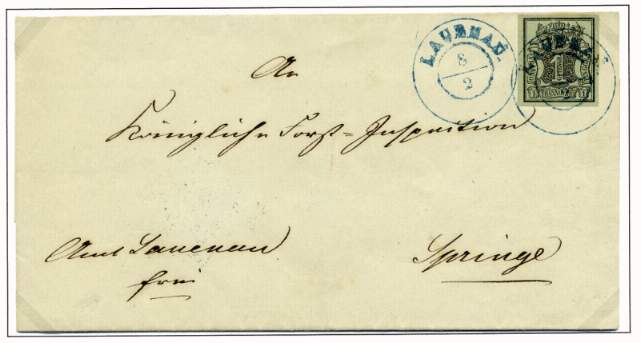 LAUENAU.
8
2
LAUENAU.
1
An
Königliche Forst=Inspection
Amt Lauenau
frei
Springe